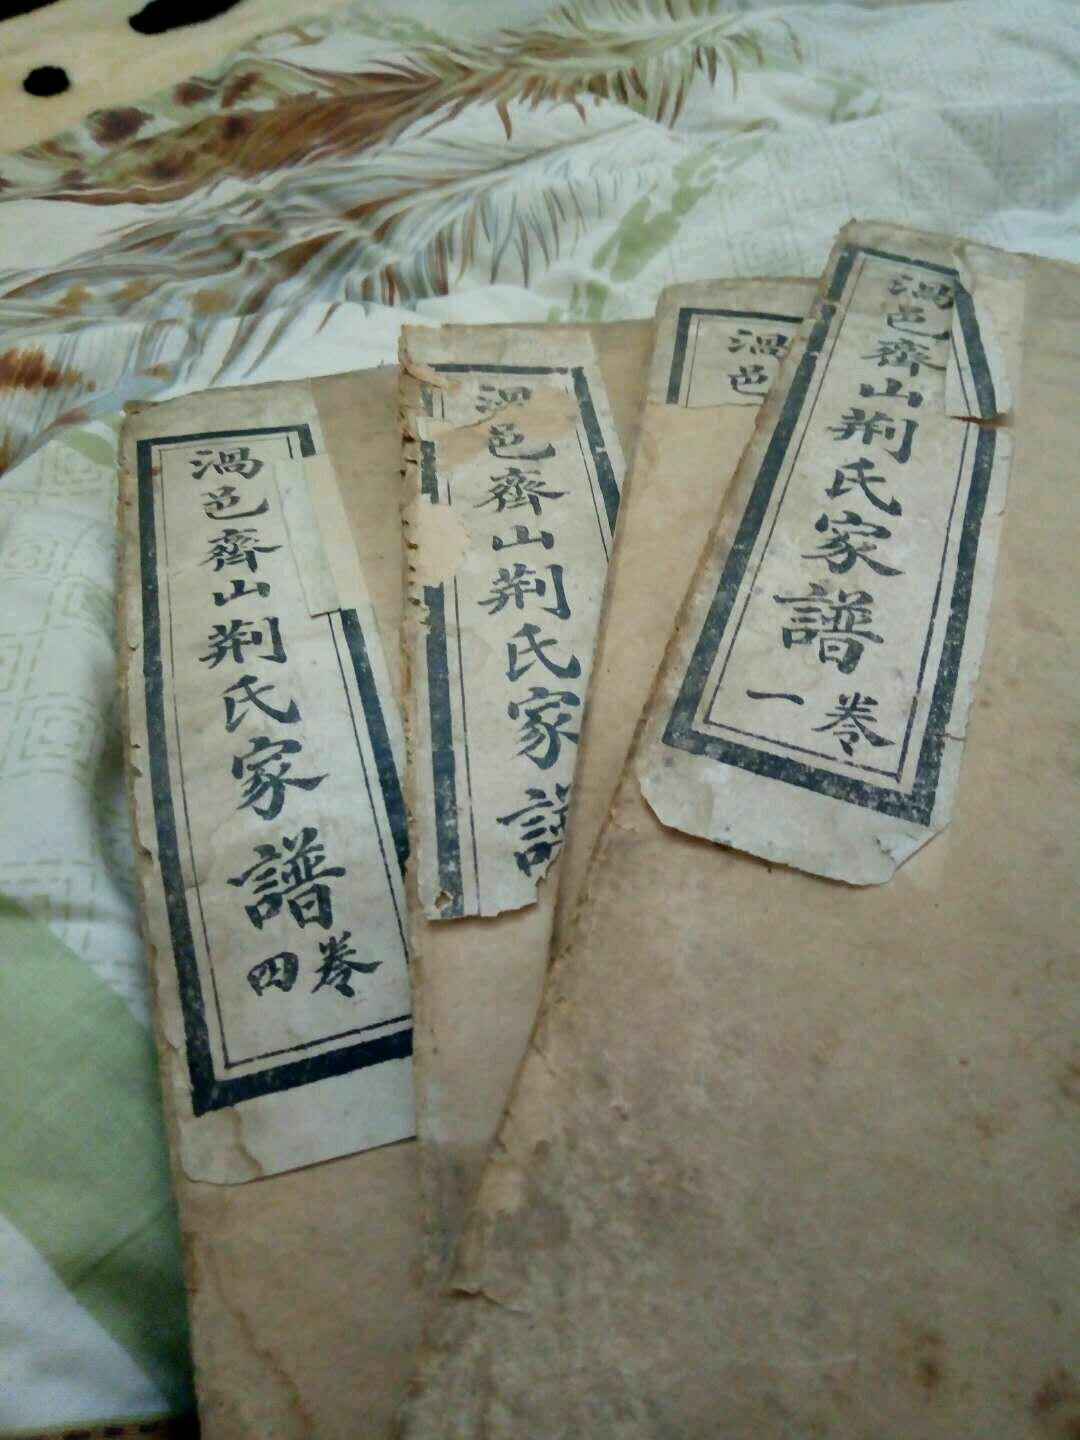 渦邑齊山荆氏家譜
卷四
渦邑齊山荆氏家譜
渦邑
渦邑齊山荆氏家譜
卷一